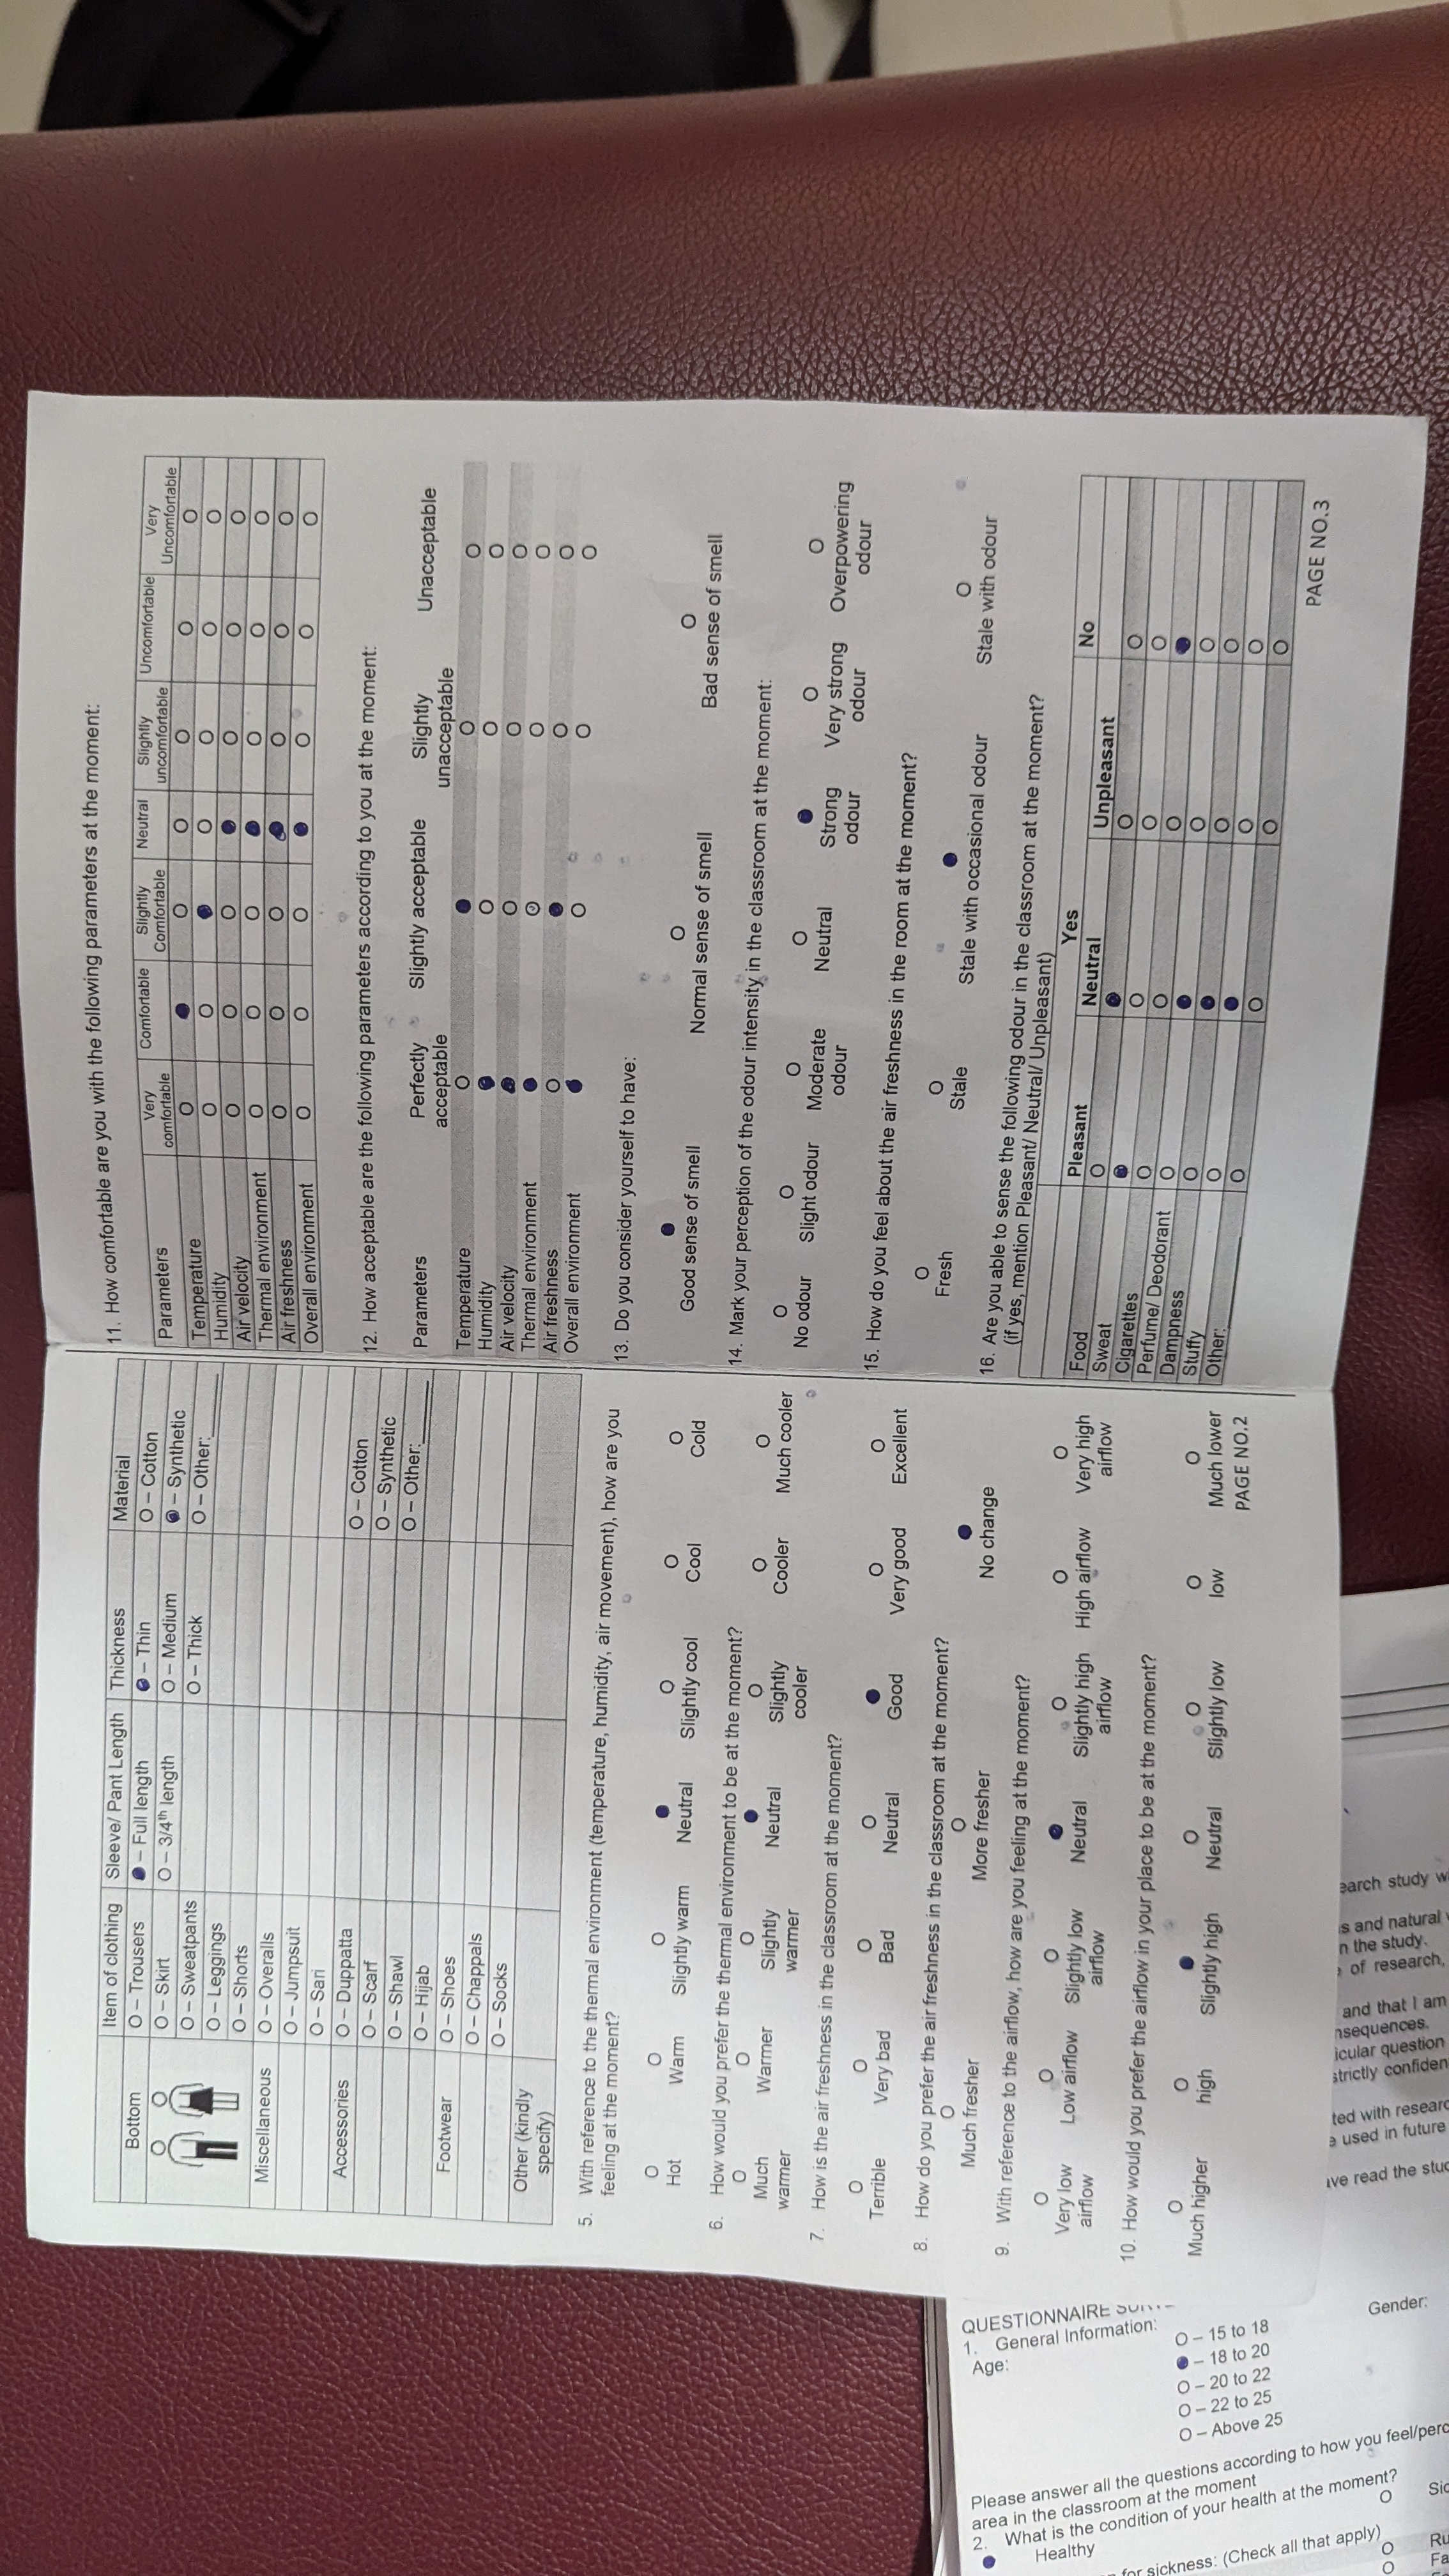 Item of clothing Sleeve/ Pant Length Thickness Material
Bottom O – Trousers ● – Full length ● – Thin O – Cotton
O – Skirt O – 3/4th length O – Medium ● – Synthetic
O – Sweatpants O – Thick O – Other:______
O – Leggings
O – Shorts
Miscellaneous O – Overalls
O – Jumpsuit
O – Sari
Accessories O – Duppatta O – Cotton
O – Scarf O – Synthetic
O – Shawl O – Other:______
O – Hijab
Footwear O – Shoes
O – Chappals
O – Socks
Other (kindly
specify)
5. With reference to the thermal environment (temperature, humidity, air movement), how are you
feeling at the moment?
O O O ● O O O
Hot Warm Slightly warm Neutral Slightly cool Cool Cold
6. How would you prefer the thermal environment to be at the moment?
O O O ● O O O
Much Warmer Slightly Neutral Slightly Cooler Much cooler
warmer warmer cooler
7. How is the air freshness in the classroom at the moment?
O O O O ● O O
Terrible Very bad Bad Neutral Good Very good Excellent
8. How do you prefer the air freshness in the classroom at the moment?
O O ●
Much fresher More fresher No change
9. With reference to the airflow, how are you feeling at the moment?
O O O ● O O O
Very low Low airflow Slightly low Neutral Slightly high High airflow Very high
airflow airflow airflow airflow
10. How would you prefer the airflow in your place to be at the moment?
O O ● O O O O
Much higher high Slightly high Neutral Slightly low low Much lower
PAGE NO.2
11. How comfortable are you with the following parameters at the moment:
Parameters Very Comfortable Slightly Neutral Slightly Uncomfortable Very
comfortable Comfortable uncomfortable Uncomfortable
Temperature O ● O O O O O
Humidity O O ● O O O O
Air velocity O O O ● O O O
Thermal environment O O O ● O O O
Air freshness O O O ● O O O
Overall environment O O O ● O O O
12. How acceptable are the following parameters according to you at the moment:
Parameters Perfectly Slightly acceptable Slightly Unacceptable
acceptable unacceptable
Temperature O ● O O
Humidity ● O O O
Air velocity ● O O O
Thermal environment ● O O O
Air freshness O ● O O
Overall environment ● O O O
13. Do you consider yourself to have:
● O O
Good sense of smell Normal sense of smell Bad sense of smell
14. Mark your perception of the odour intensity in the classroom at the moment:
O O O O ● O O
No odour Slight odour Moderate Neutral Strong Very strong Overpowering
odour odour odour odour
15. How do you feel about the air freshness in the room at the moment?
O O ● O
Fresh Stale Stale with occasional odour Stale with odour
16. Are you able to sense the following odour in the classroom at the moment?
(if yes, mention Pleasant/ Neutral/ Unpleasant)
Yes No
Pleasant Neutral Unpleasant
Food O ● O O
Sweat ● O O O
Cigarettes O O O ●
Perfume/ Deodorant O ● O O
Dampness O ● O O
Stuffy O ● O O
Other:______ O O O O
PAGE NO.3
QUESTIONNAIRE
1. General Information:
Age: O – 15 to 18 Gender:
● – 18 to 20
O – 20 to 22
O – 22 to 25
O – Above 25
Please answer all the questions according to how you feel/perc
area in the classroom at the moment
2. What is the condition of your health at the moment?
● Healthy O Sic
for sickness: (Check all that apply)
O Ru
O Fa
earch study w
s and natural
n the study.
of research,
and that I am
nsequences.
icular question
strictly confiden
ted with researc
used in future
ave read the stud